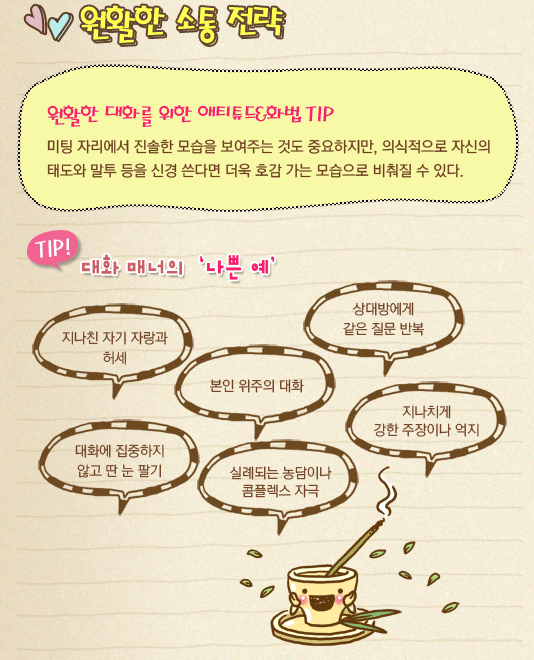 원활한 소통 전략
원활한 대화를 위한 애티튜드&화법 TIP
미팅 자리에서 진솔한 모습을 보여주는 것도 중요하지만, 의식적으로 자신의
태도와 말투 등을 신경 쓴다면 더욱 호감 가는 모습으로 비춰질 수 있다.
TIP!
대화 매너의 '나쁜 예'
지나친 자기 자랑과
허세
상대방에게
같은 질문 반복
본인 위주의 대화
지나치게
강한 주장이나 억지
대화에 집중하지
않고 딴 눈 팔기
실례되는 농담이나
콤플렉스 자극